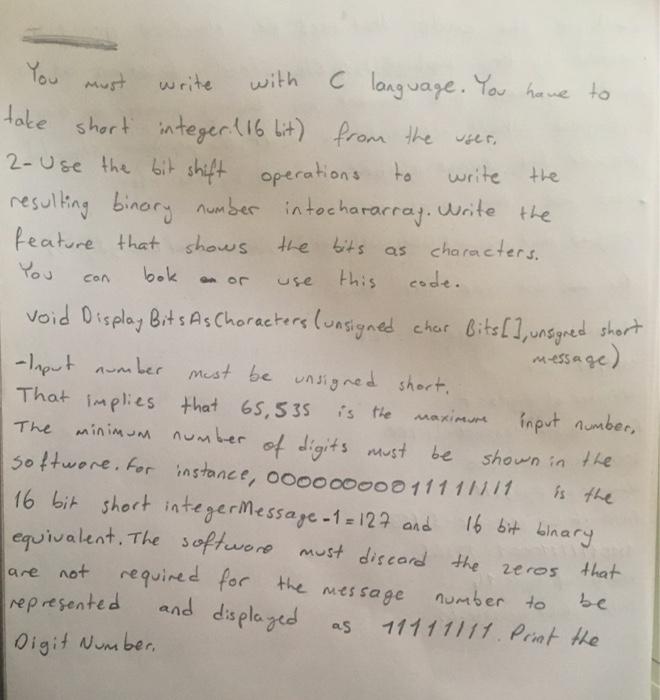 You must write with C language. You have to
take short integer.(16 bit) from the user.
2-Use the bit shift operations to write the
resulting binary number intochararray. Write the
feature that shows the bits as characters.
You can look or use this code.
void DisplayBitsAsCharacters(unsigned char Bits[],unsigned short
message)
-Input number must be unsigned short.
That implies that 65,535 is the maximum input number.
The minimum number of digits must be shown in the
software. For instance, 0000000011111111 is the
16 bit short integerMessage-1=127 and 16 bit binary
equivalent. The software must discard the zeros that
are not required for the message number to be
represented and displayed as 11111111. Print the
Digit Number.